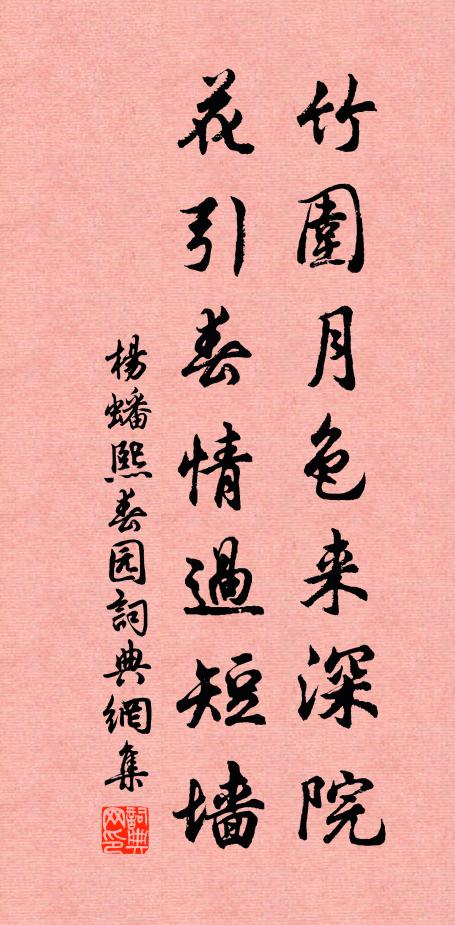 竹圍月色来深院
花引春情過短墻
楊蟠熙春园詞典網集
詞典网印